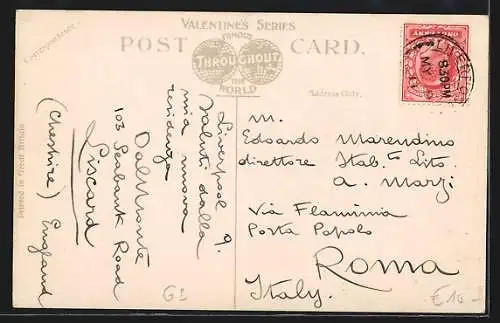 VALENTINE'S SERIES
FAMOUS
POST CARD.
THROUGHOUT
THE
WORLD
Correspondence.
Address Only.
Printed in Great Britain
LIVERPOOL
8.30 PM
MY
11
Liverpool 9.
Saluti dalla
mia nuova
residenza
Dalmonte
103 Seabank Road
Liscard
(Cheshire) England
M.
Edoardo Marendino
direttore Stab.to Lito.
A. Marzi
Via Flaminia
Porta Popolo
Roma
Italy.
G1
€10.-